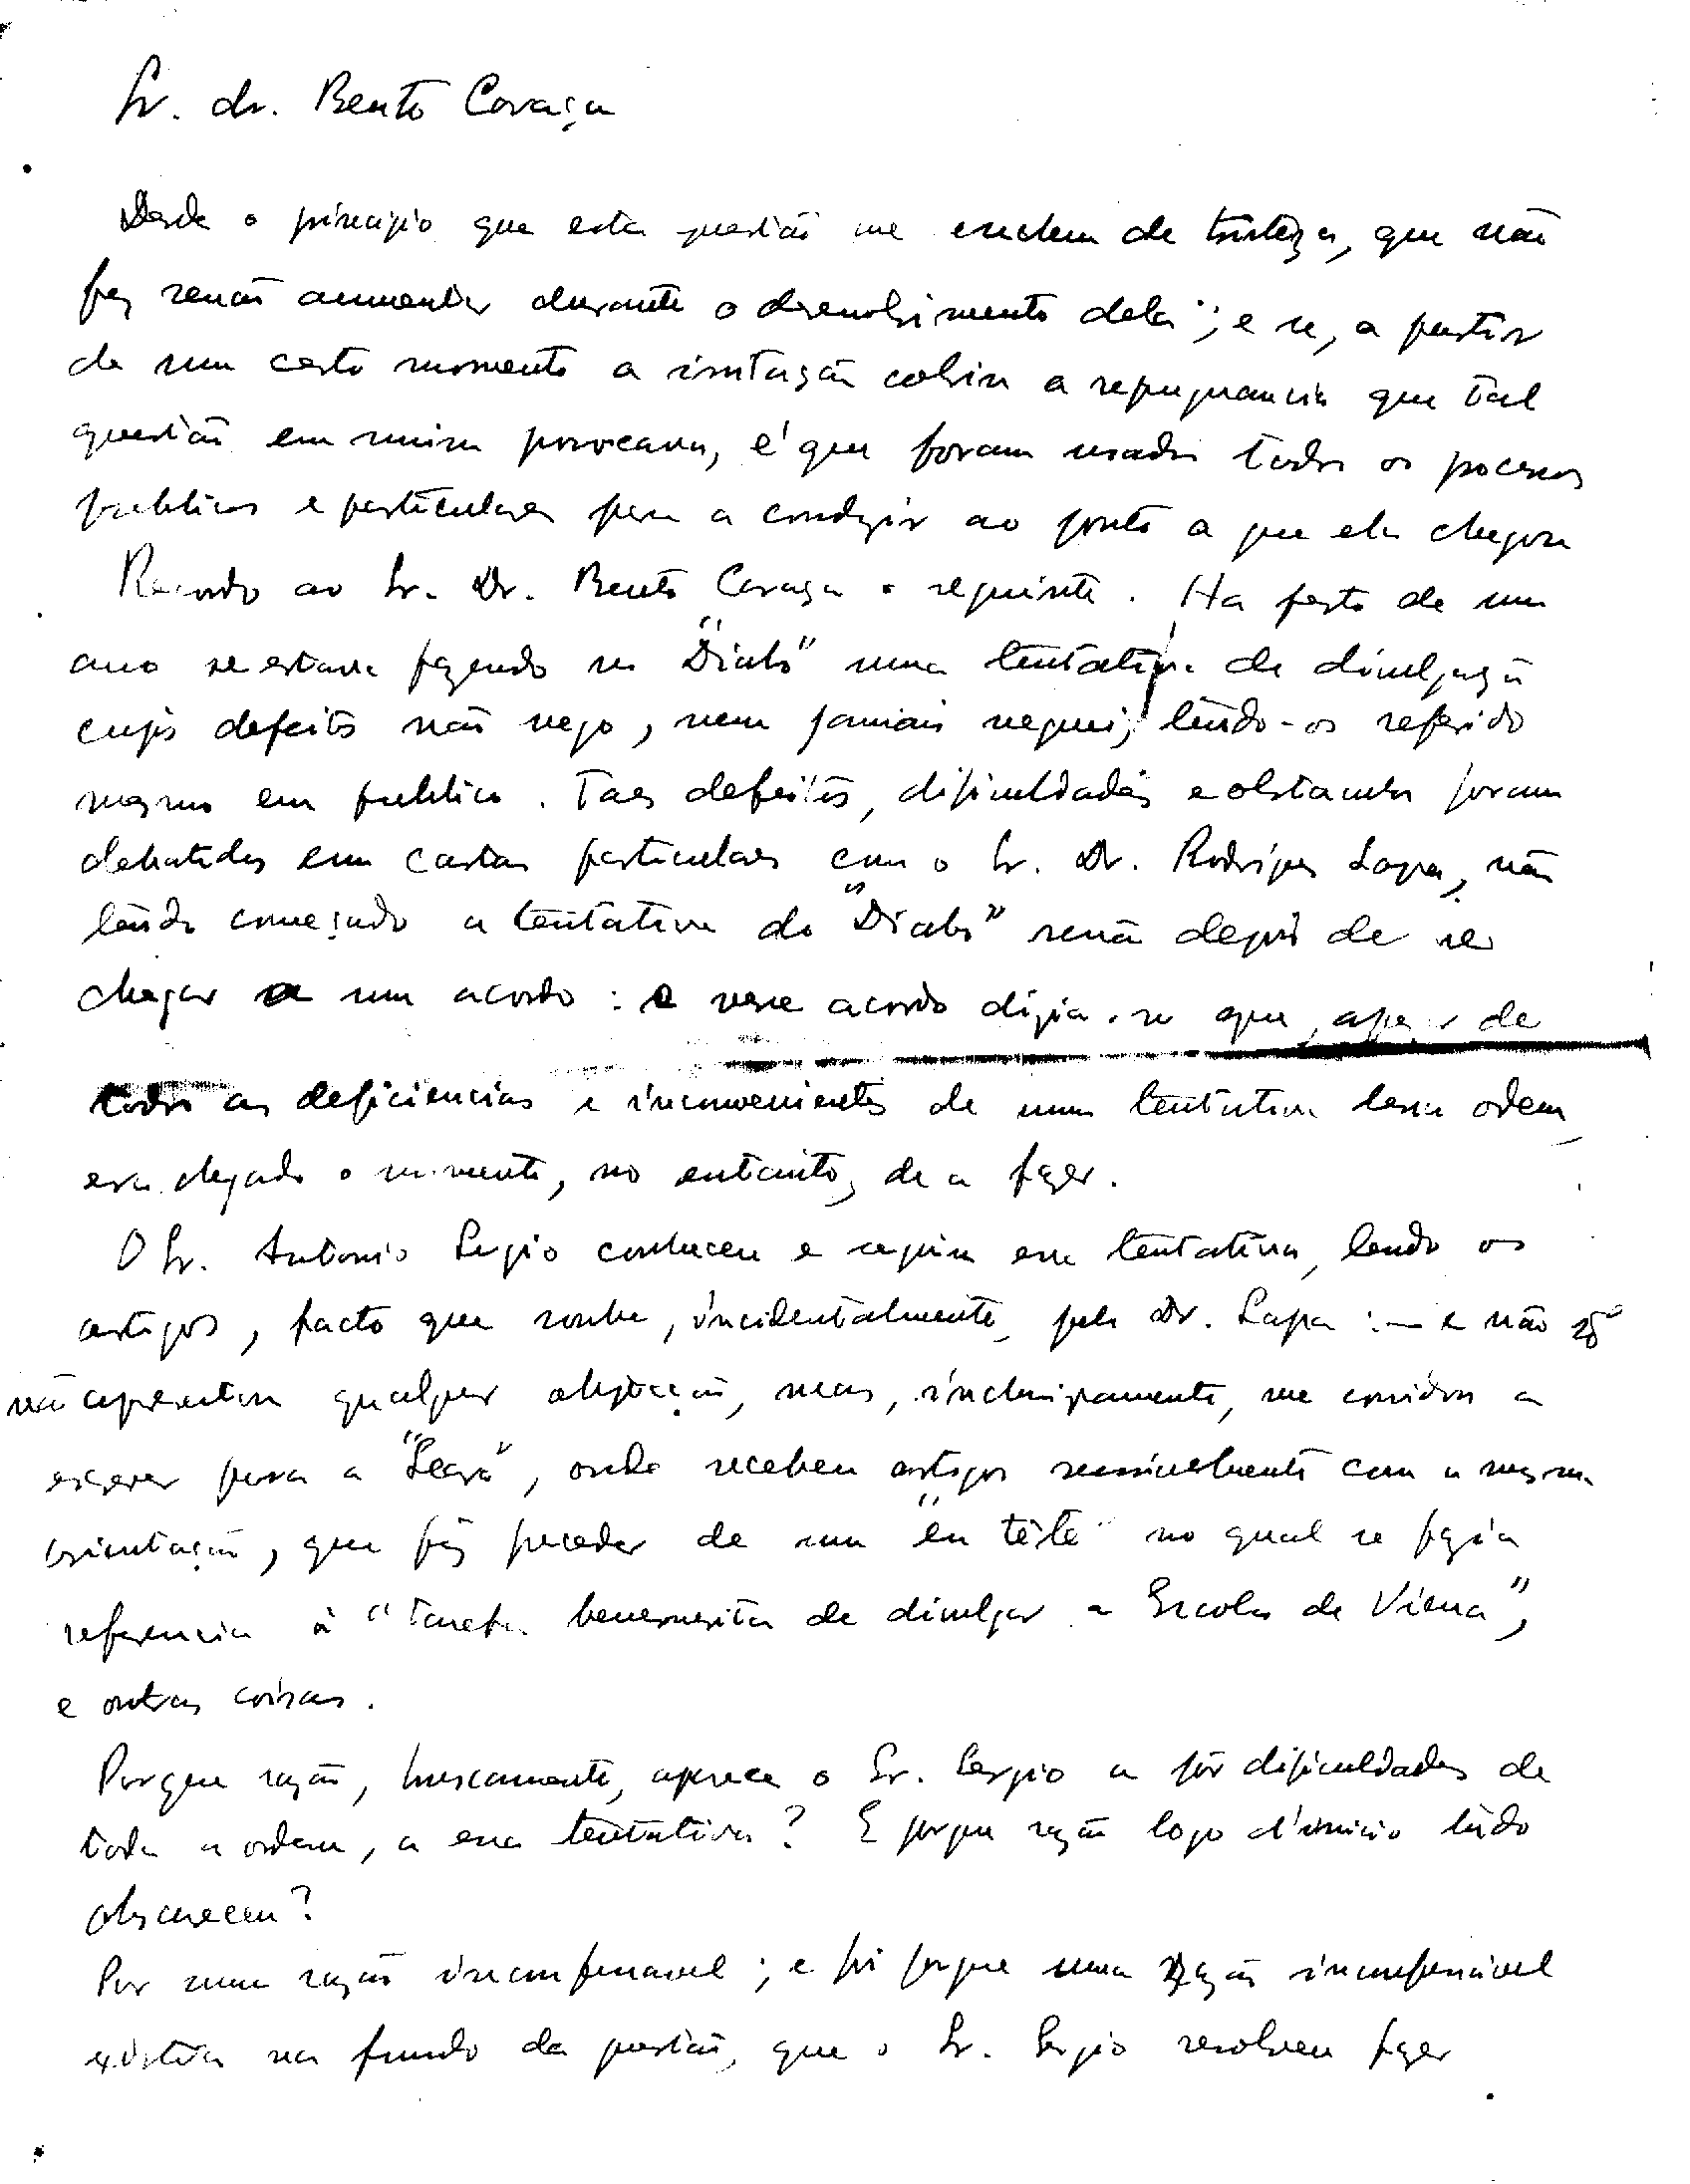 Sr. dr. Bento Caraça
Desde o principio que esta questão me encheu de tristeza, que não
fez senão aumentar durante o desenvolvimento dela; e se, a partir
de um certo momento a irritação cobriu a repugnancia que tal
questão em mim provocava, é que foram usados todos os processos
publicos e particulares para a conduzir ao ponto a que ela chegou
Recordo ao Sr. Dr. Bento Caraça o seguinte. Ha perto de um
ano se estava fazendo no "Diabo" uma tentativa de divulgação
cujos defeitos não nego, nem jamais neguei, tendo-os referido
mesmo em publico. Taes defeitos, dificuldades e obstaculos foram
debatidos em cartas particulares com o Sr. Dr. Rodrigues Lapa, não
tendo começado a tentativa do "Diabo" senão depois de se
chegar a um acordo: e nesse acordo dizia-se que, apesar de
todas as deficiencias e inconvenientes de uma tentativa dessa ordem,
era chegado o momento, no entanto, de a fazer.
O Sr. Antonio Sergio conheceu e seguiu essa tentativa, lendo os
artigos, facto que soube, incidentalmente, pelo Dr. Lapa :— e não só
não apresentou qualquer objecção, mas, inclusivamente, me convidou a
escrever para a "Seara", onde recebeu artigos sensivelmente com a mesma
orientação, que fez preceder de um "en tête" no qual se fazia
referencia à "tarefa benemerita de divulgar a Escola de Viena",
e outras coisas.
Porque razão, bruscamente, aparece o Sr. Sergio a pôr dificuldades de
toda a ordem, a essa tentativa? E porque razão logo d'inicio tudo
obscureceu?
Por uma razão incompensavel; e foi porque uma razão incompensável
existia no fundo da questão, que o Sr. Sergio resolveu fazer